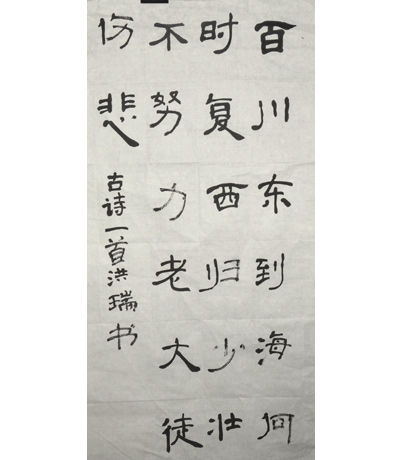 百川东到海何
时复西归少壮
不努力老大徒
伤悲
古诗一首洪瑞书